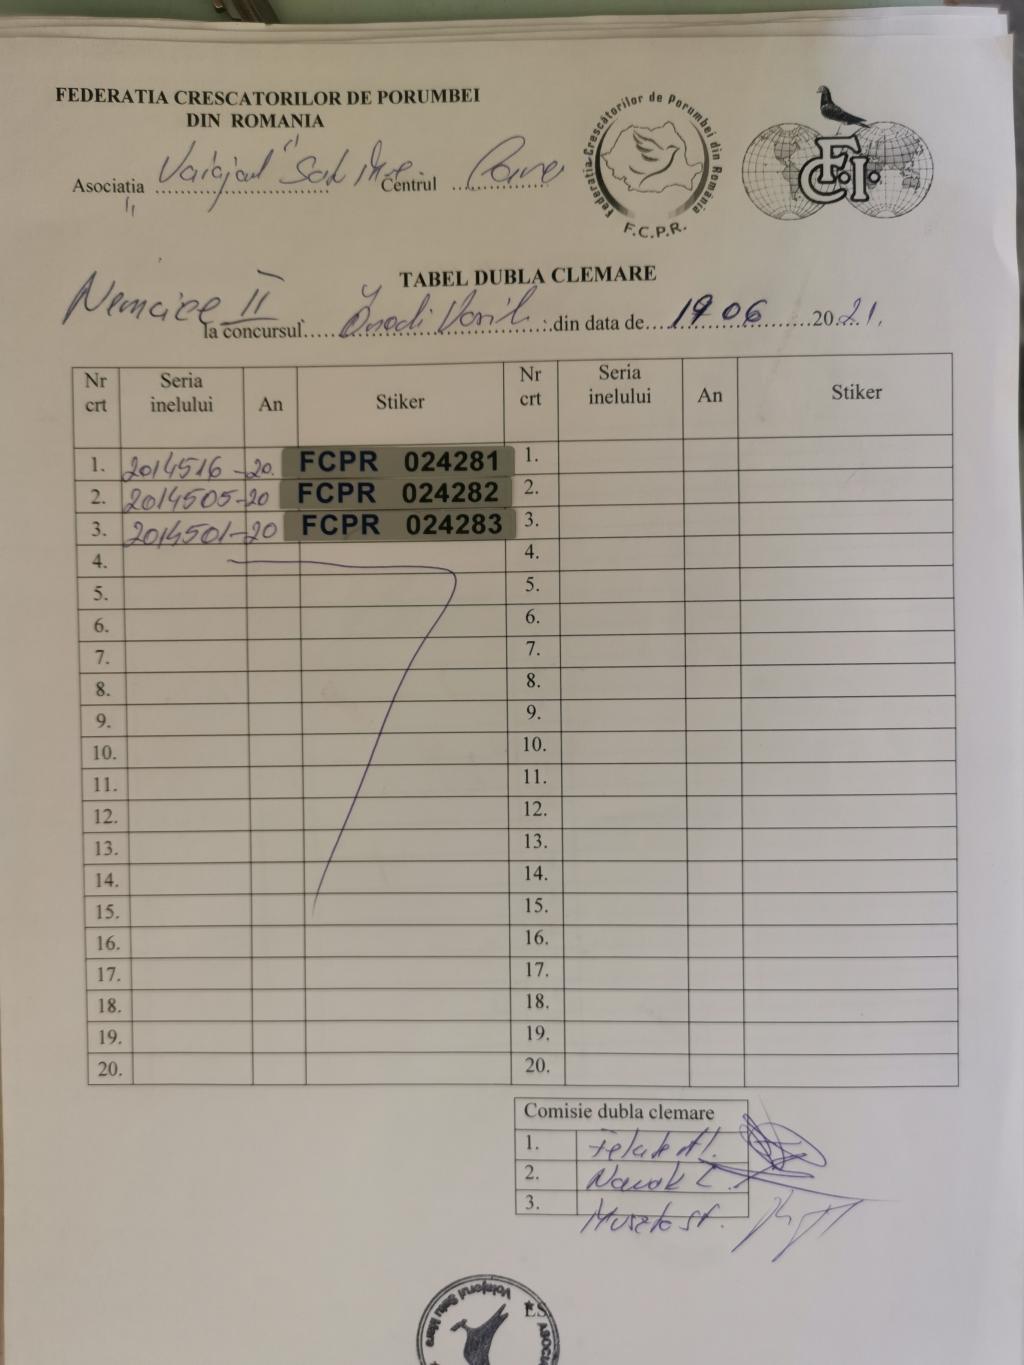 FEDERATIA CRESCATORILOR DE PORUMBEI
DIN ROMANIA
Asociatia Centrul
Federatia Crescătorilor de Porumbei din România
F.C.P.R.
F.C.I.
TABEL DUBLA CLEMARE
II la concursul din data de 19 06 2021.
Nr crt Seria inelului An Stiker Nr crt Seria inelului An Stiker
1. 2014516 - 20. FCPR 024281 1.
2. 2014505 - 20 FCPR 024282 2.
3. 2014501 - 20 FCPR 024283 3.
4. 4.
5. 5.
6. 6.
7. 7.
8. 8.
9. 9.
10. 10.
11. 11.
12. 12.
13. 13.
14. 14.
15. 15.
16. 16.
17. 17.
18. 18.
19. 19.
20. 20.
Comisie dubla clemare
1.
2. Novak
3.
Satu Mare